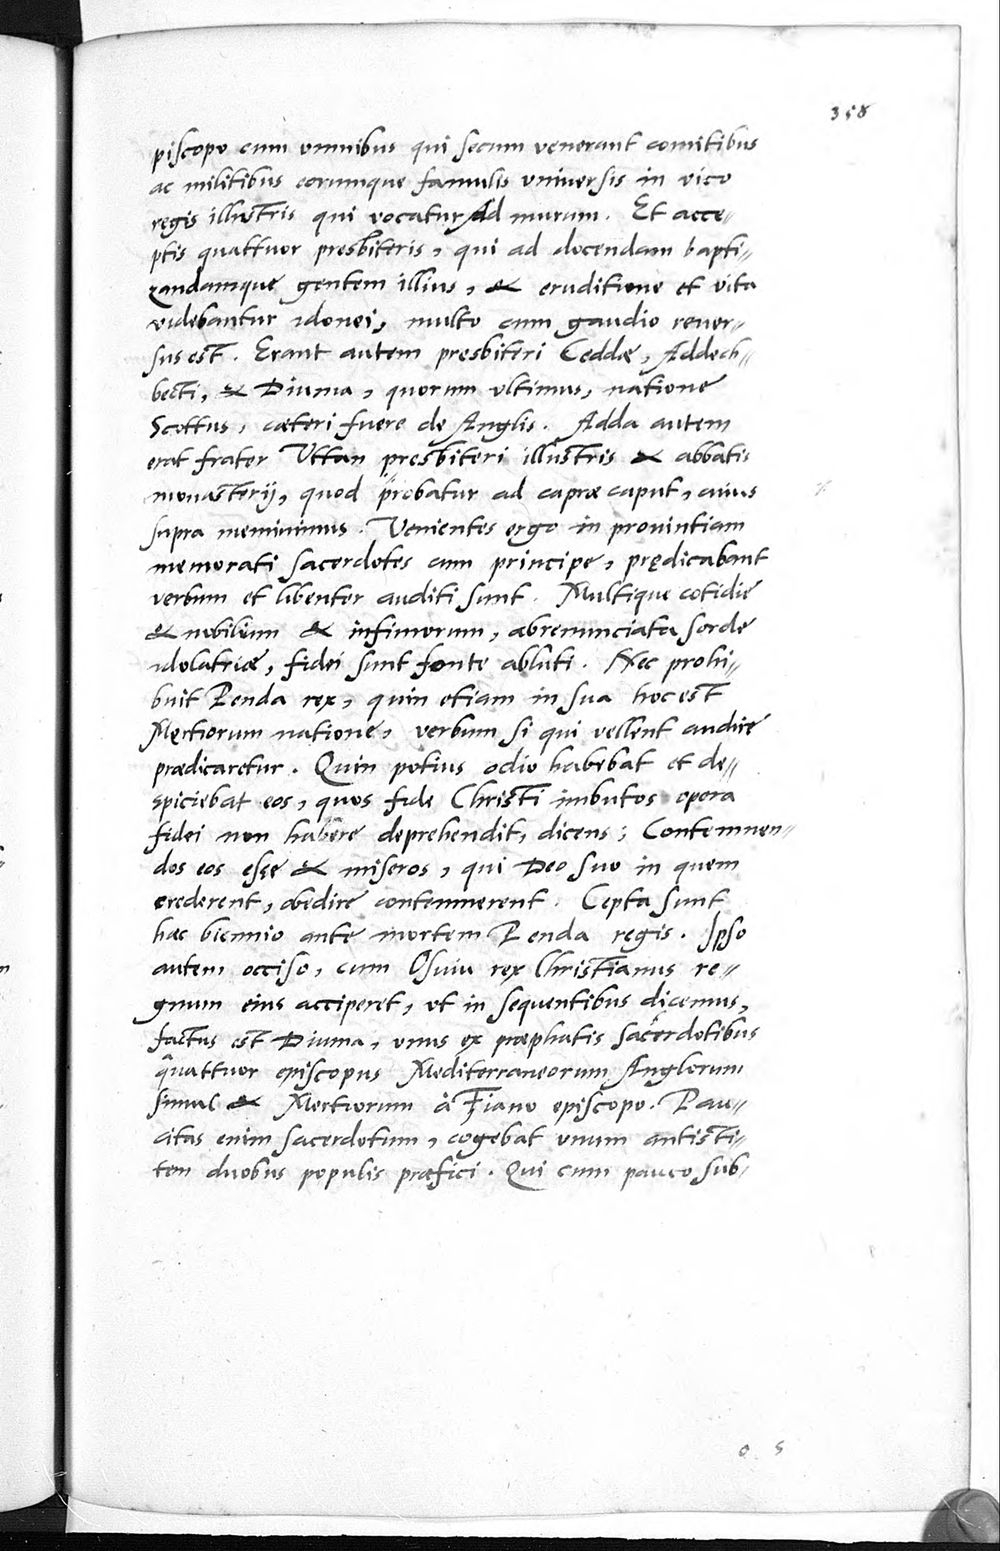 358
piscopo cum omnibus qui secum venerant comitibus
ac militibus eorumque famulis universis in vico
regis illustris qui vocatur Ad murum. Et acce„
ptis quattuor presbiteris, qui ad docendam bapti„
zandamque gentem illius, & eruditione et vita
videbantur idonei, multo cum gaudio rever„
sus est. Erant autem presbiteri Ceddæ, Addech„
becti, & Diuma, quorum ultimus, natione
Scottus, cæteri fuere de Anglis. Adda autem
erat frater Vttan presbiteri illustris & abbatis
monasterij, quod probatur ad capræ caput, cuius
supra meminimus. Venientes ergo in provintiam
memorati sacerdotes cum principe, prędicabant
verbum et libenter auditi sunt. Multique cotidie
& nobilium & infimorum, abrenunciata sorde
idolatriæ, fidei sunt fonte abluti. Nec prohi„
buit Penda rex, quin etiam in sua hoc est
Męrtiorum natione, verbum si qui vellent audire
prædicaretur. Quin potius odio habebat et de„
spiciebat eos, quos fide Christi imbutos opera
fidei non habere deprehendit, dicens; Contemnen„
dos eos esse & miseros, qui Deo suo in quem
crederent, obedire contemnerent. Cepta sunt
hac biennio ante mortem Penda regis. Ipso
autem occiso, cum Osuiu rex Christianus re„
gnum eius acciperet, ut in sequentibus dicemus,
factus est Diuma, unus ex præphatis sacerdotibus
quattuor episcopus Mediterraneorum Anglorum
simul & Mertiorum à Fiano episcopo. Pau„
citas enim sacerdotum, cogebat unum antisti„
tem duobus populis præfici. Qui cum pauco sub„
o 5